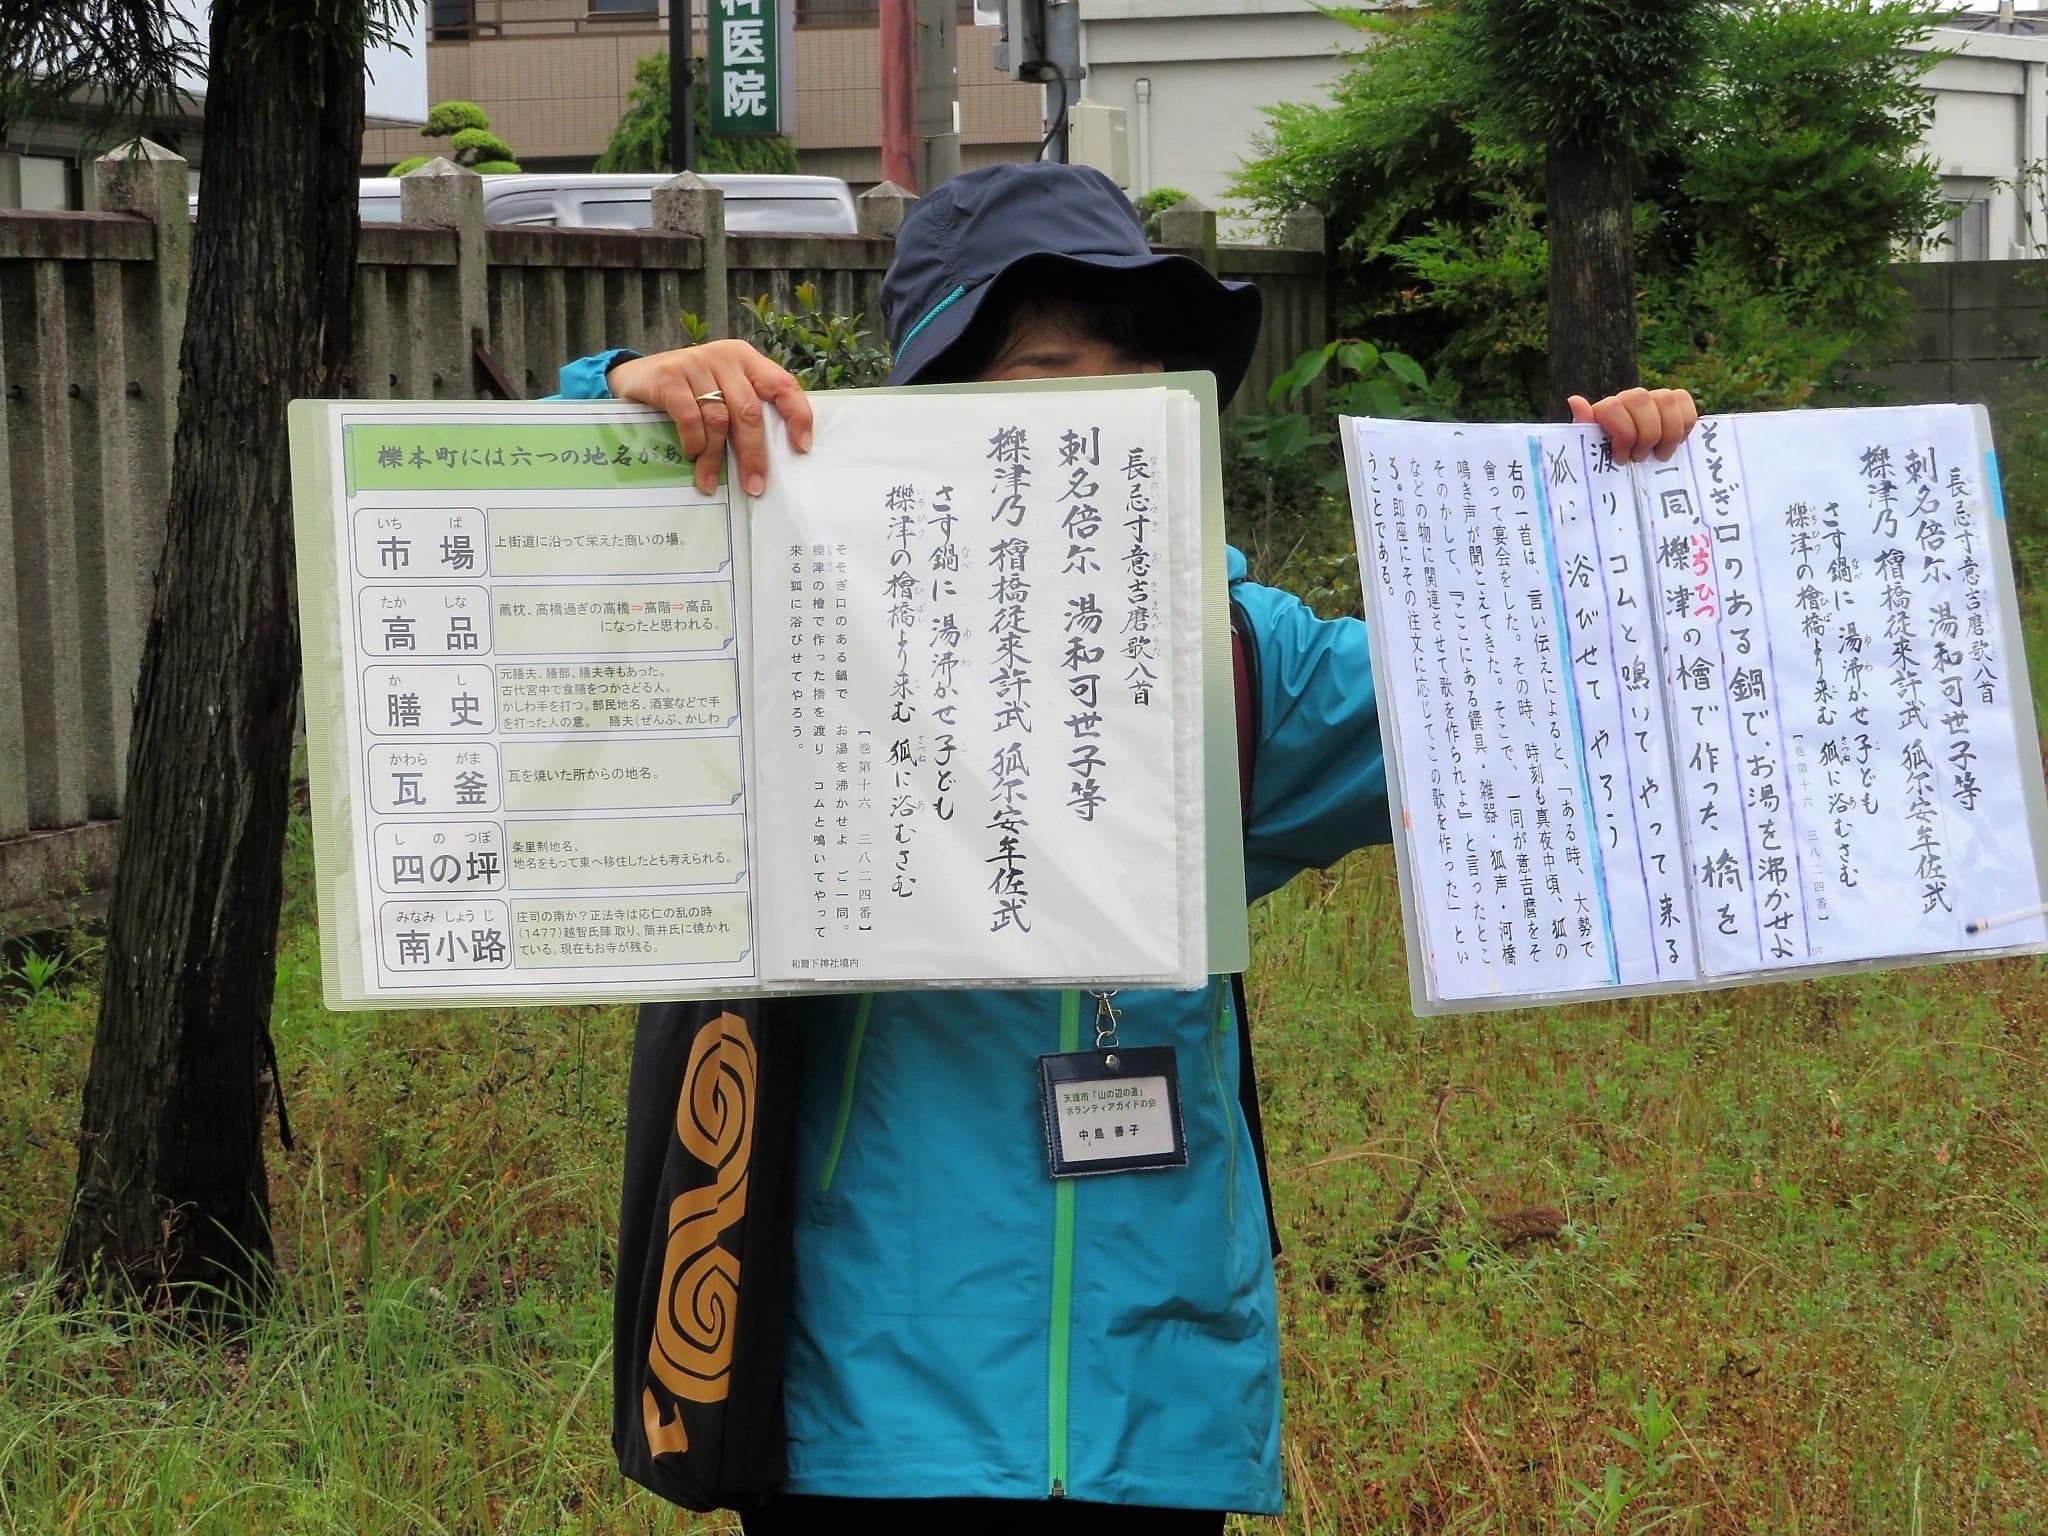 科医院
櫟本町には六つの地名があ
いち ば
市場
上街道に沿って栄えた商いの場。
たか しな
高品
薦枕、高橋過ぎの高橋⇒高階⇒高品
になったと思われる。
か し
膳史
元膳夫、膳部、膳夫寺もあった。
古代宮中で食膳をつかさどる人。
かしわ手を打つ。部民地名、酒宴などで手
を打った人の意。 膳夫(ぜんぶ、かしわ
かわら がま
瓦釜
瓦を焼いた所からの地名。
し の つぼ
四の坪
条里制地名、
地名をもって東へ移住したとも考えられる。
みなみ しょう じ
南小路
庄司の南か？正法寺は応仁の乱の時
(1477)越智氏陣取り、筒井氏に焼かれ
ている。現在もお寺が残る。
長忌寸意吉麿歌八首
刺名倍尓 湯和可世子等
櫟津乃 檜橋従来許武 狐尓安牟佐武
さす鍋に 湯沸かせ子ども
櫟津の檜橋より来む 狐に浴むさむ
【巻第十六 三八二四番】
そそぎ口のある鍋で お湯を沸かせよ ご一同。
櫟津の檜で作った橋を渡り コムと鳴いてやって
来る狐に浴びせてやろう。
和爾下神社境内
長忌寸意吉麿歌八首
刺名倍尓 湯和可世子等
櫟津乃 檜橋従来許武 狐尓安牟佐武
さす鍋に 湯沸かせ子ども
櫟津の檜橋より来む 狐に浴むさむ
【巻第十六 三八二四番】
そそぎ口のある鍋で、お湯を沸かせよ
一同、櫟津の檜で作った橋を
いちひつ
渡り、コムと鳴いてやって来る
狐に浴びせてやろう
右の一首は、言い伝えによると、「ある時、大勢で
會って宴会をした。その時、時刻も真夜中頃、狐の
鳴き声が聞こえてきた。そこで、一同が意吉麿をそ
そのかして、『ここにある饌具・雑器・狐声・河橋
などの物に関連させて歌を作られよ』と言ったとこ
ろ、即座にその注文に応じてこの歌を作った」とい
うことである。
天理市「山の辺の道」
ボランティアガイドの会
中島 善子